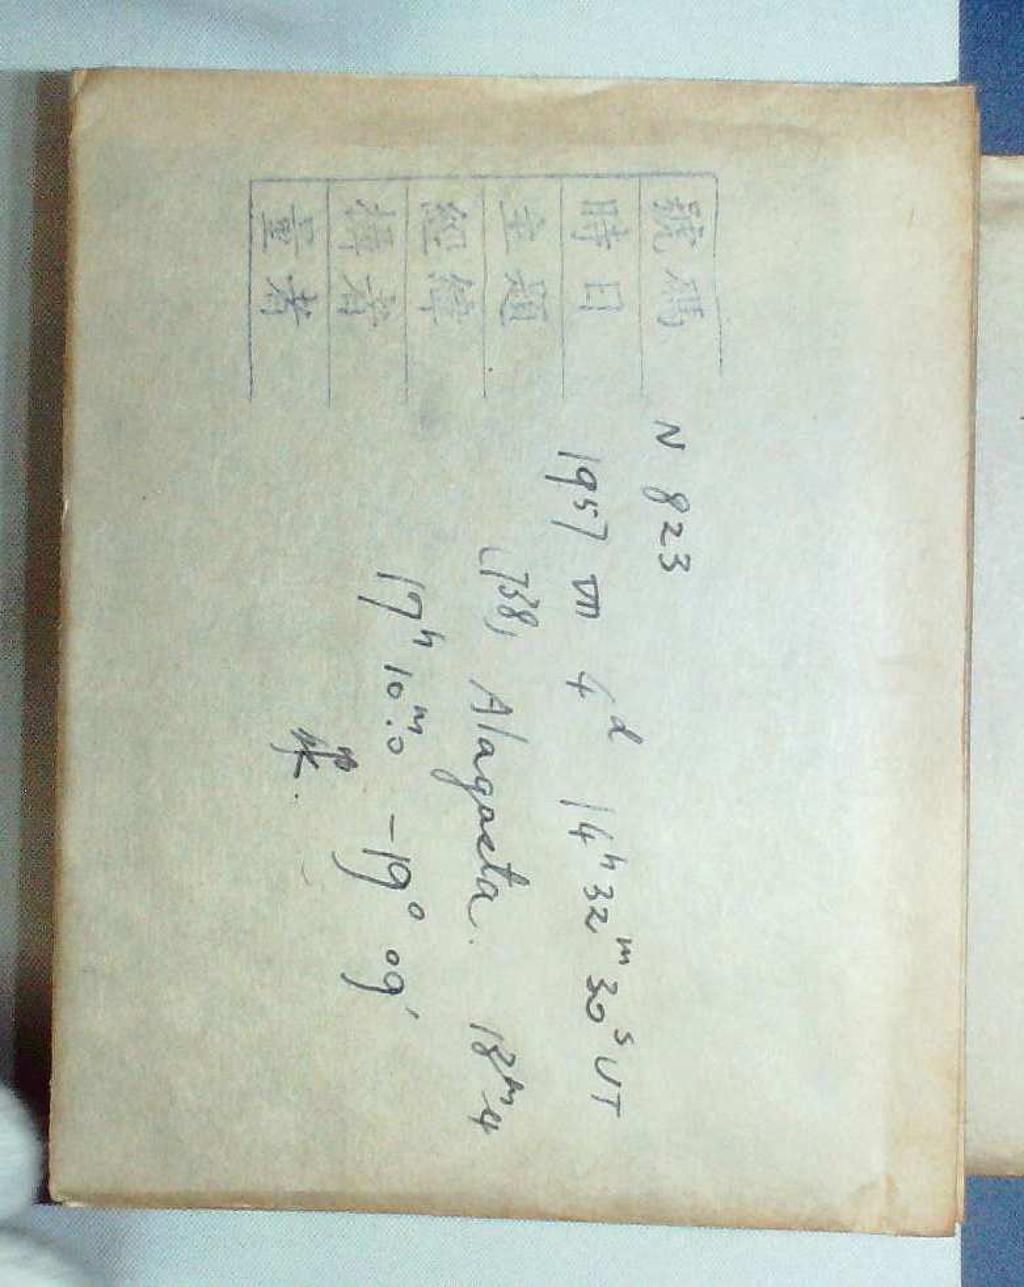 號碼 N 823
時日 1957 VII 4ᵈ 14ʰ32ᵐ30ˢUT
主題 (738) Alagasta. 18ᵐ4
經緯 17ʰ10ᵐ.0 -19° 09'
攝者
量者